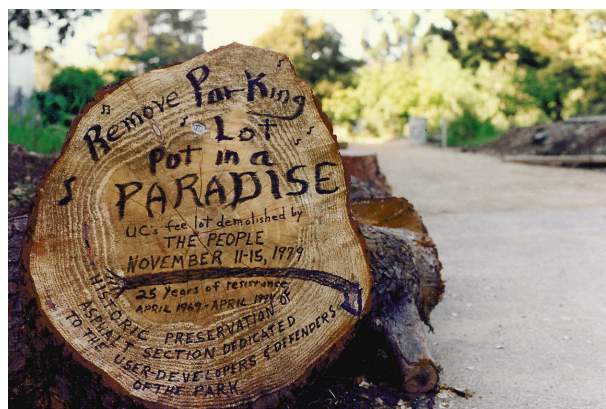 Remove Parking
Lot
Pot in a
PARADISE
UC's fee lot demolished by
THE PEOPLE
NOVEMBER 11-15, 1979
25 years of resistance
APRIL 1969 - APRIL 1994
HISTORIC PRESERVATION OF
ASPHALT SECTION DEDICATED
TO THE USER-DEVELOPERS & DEFENDERS
OF THE PARK